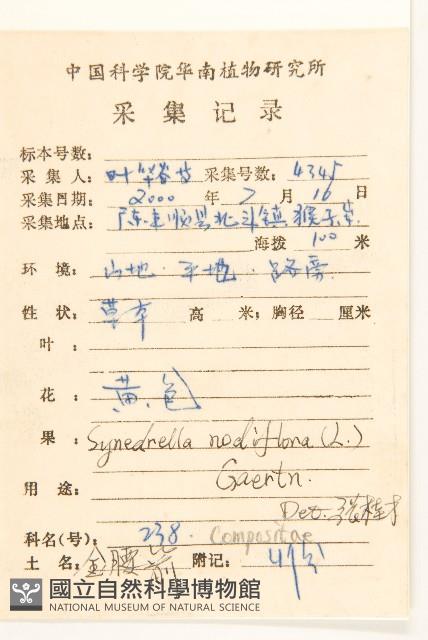 中国科学院华南植物研究所
采集记录
标本号数：
采集人：叶华谷等 采集号数：4345
采集日期：2000年7月16日
采集地点：广东顺县北斗镇猴子
海拨 100 米
环境：山地．平地．路旁
性状：草本 高 米；胸径 厘米
叶：
花：黄色
果：Synedrella nodiflora (L.)
Gaertn.
用途：
Det. 张桂才
科名(号)：238. Compositae
土名：金腰箭 附记：
國立自然科學博物館
NATIONAL MUSEUM OF NATURAL SCIENCE